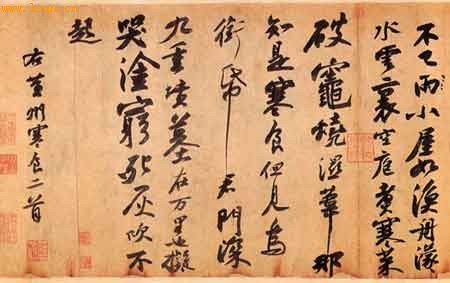 不已雨小屋如漁舟濛
水雲裏空庖煮寒菜
破竈燒濕葦那
知是寒食但見烏
銜帋君門深
九重墳墓在万里也擬
哭塗窮死灰吹不
起
右黃州寒食二首